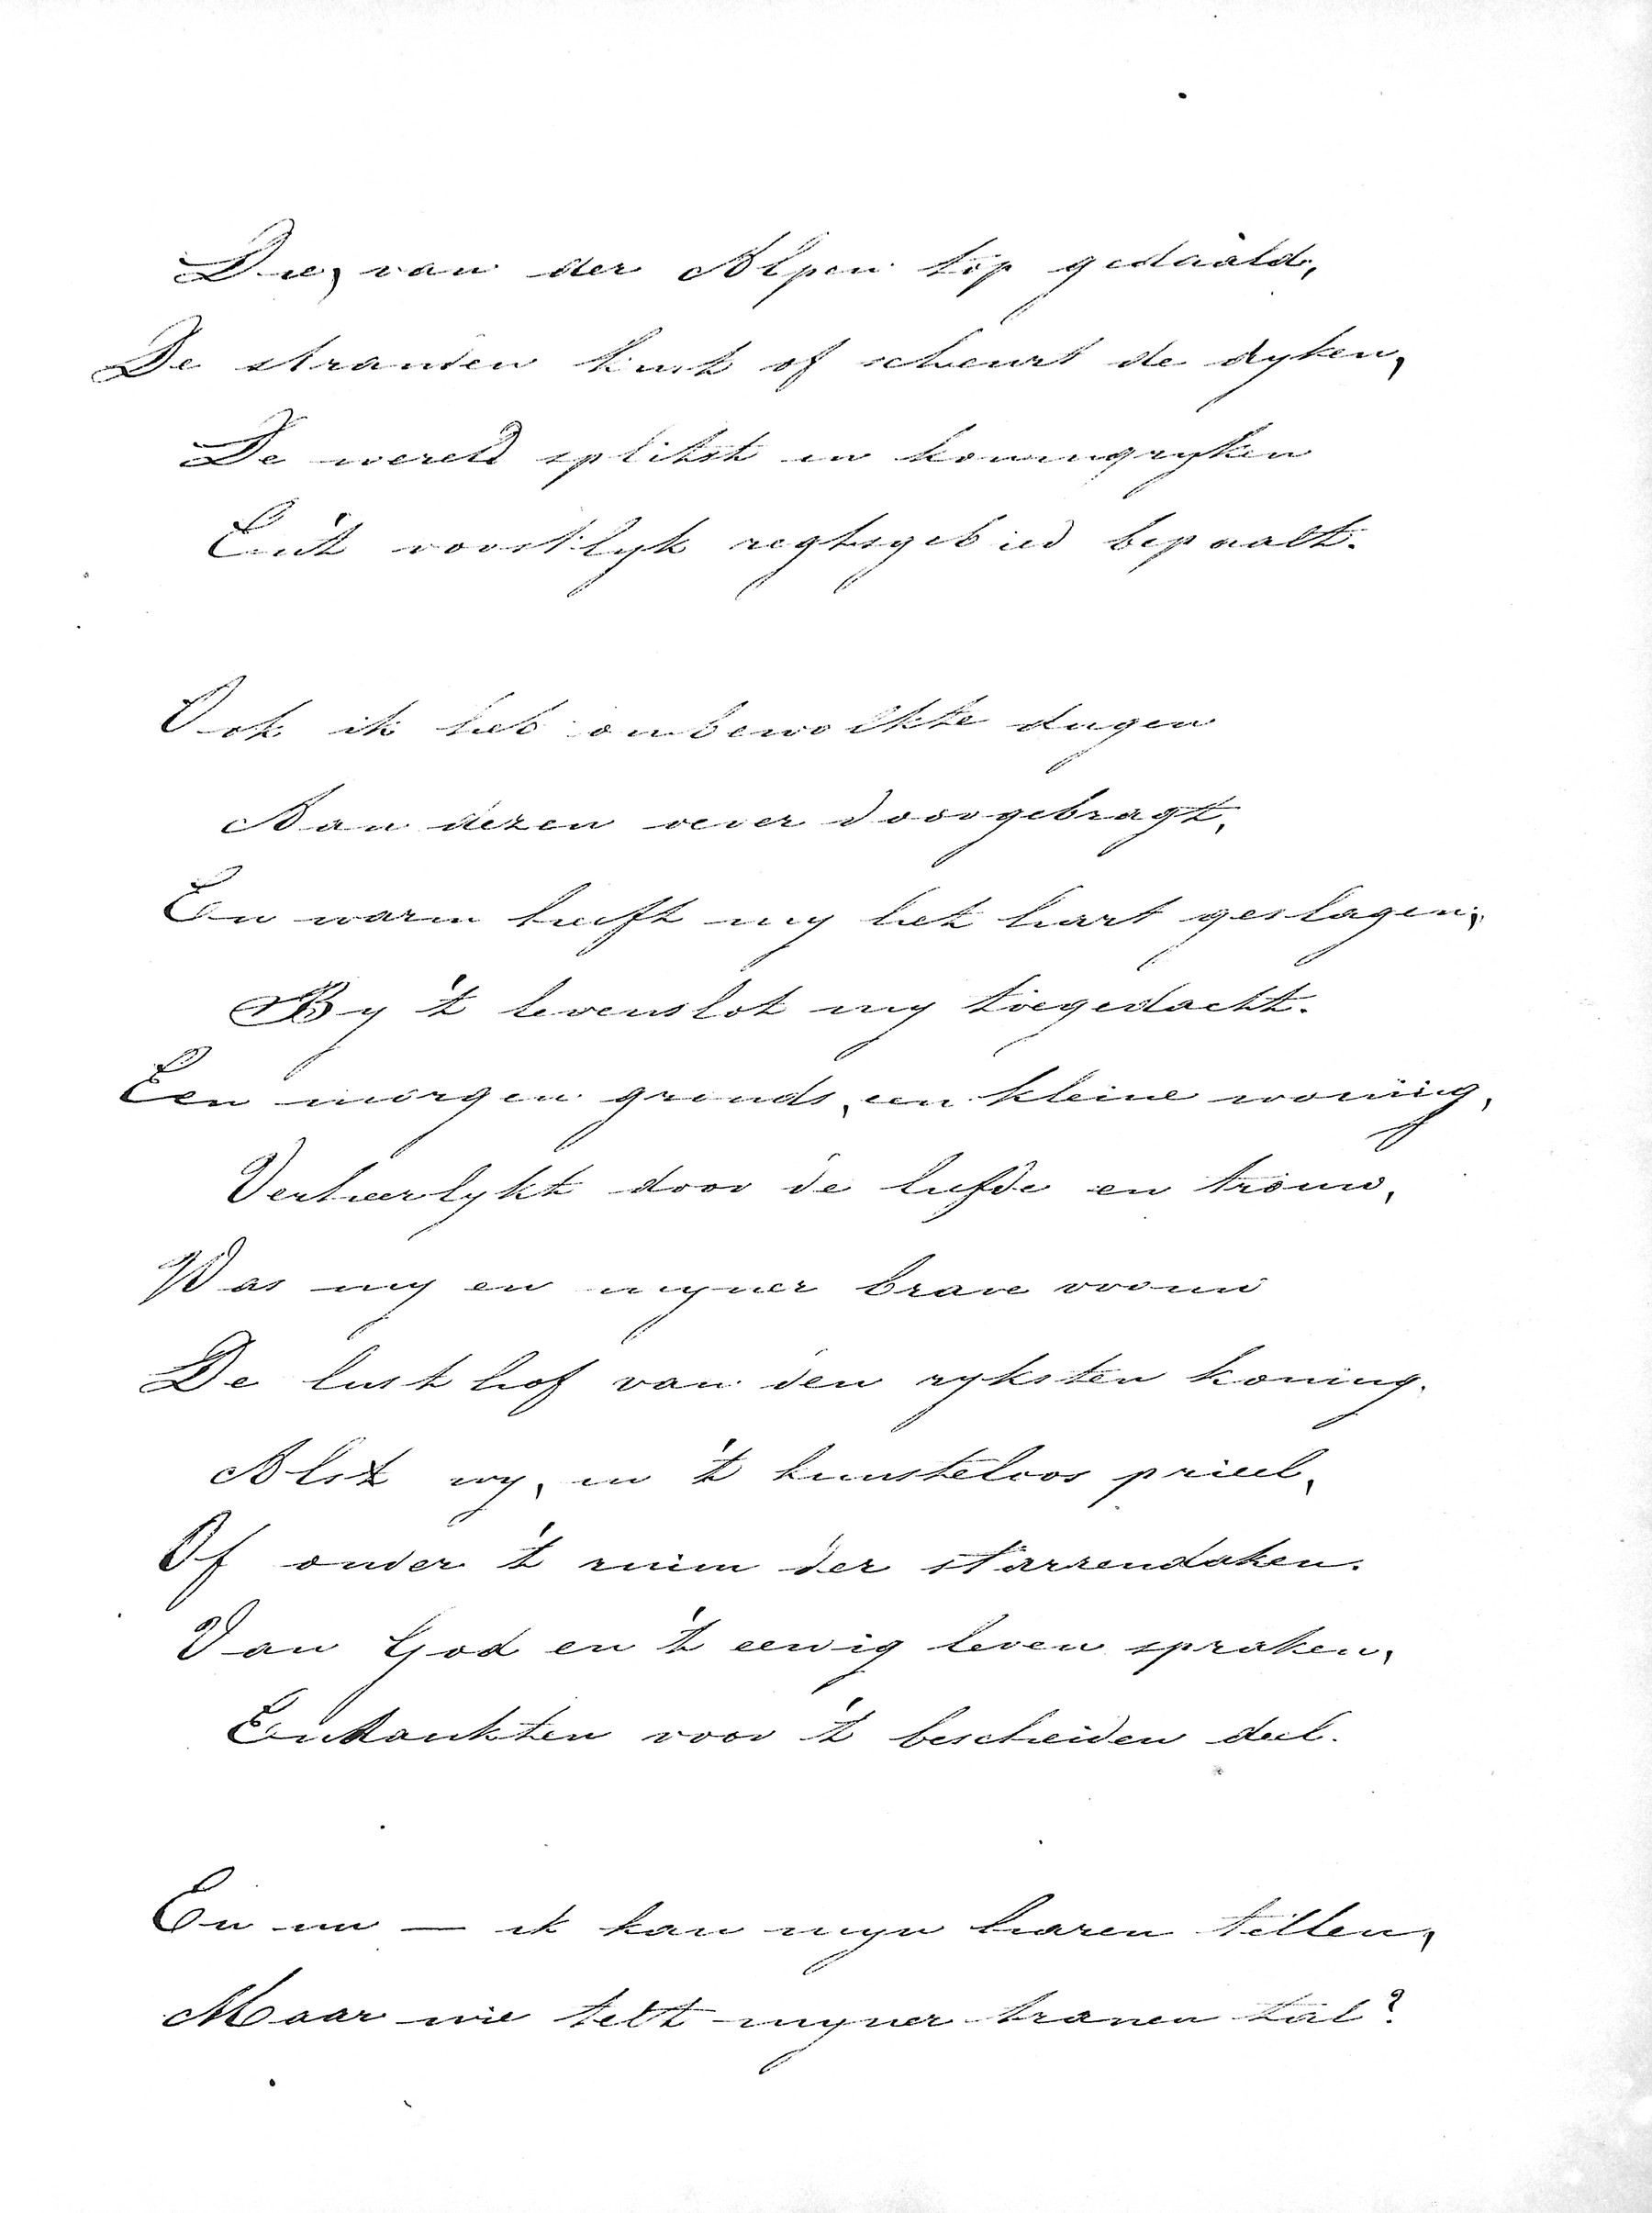 Die, van der Alpen top gedaald,
De stranden kust of scheurt de dyken,
De wereld splitst in koningryken
En 't vorstlyk regtsgebied bepaalt.
Ook ik heb onbewolkte dagen
Aan dezen oever doorgebragt,
En warm heeft my het hart geslagen,
By 't levenslot my toegedacht.
Een morgen gronds, een kleine woning,
Verheerlykt door de liefde en trouw,
Was my en myner brave vrouw
De lusthof van den ryksten koning.
Alst wy, in 't kunsteloos prieel,
Of onder 't ruim der starrendaken.
Van God en 't eewig leven spraken,
En dankten voor 't bescheiden deel.
En nu — ik kan myn haren tellen,
Maar wie telt myner tranen tal?